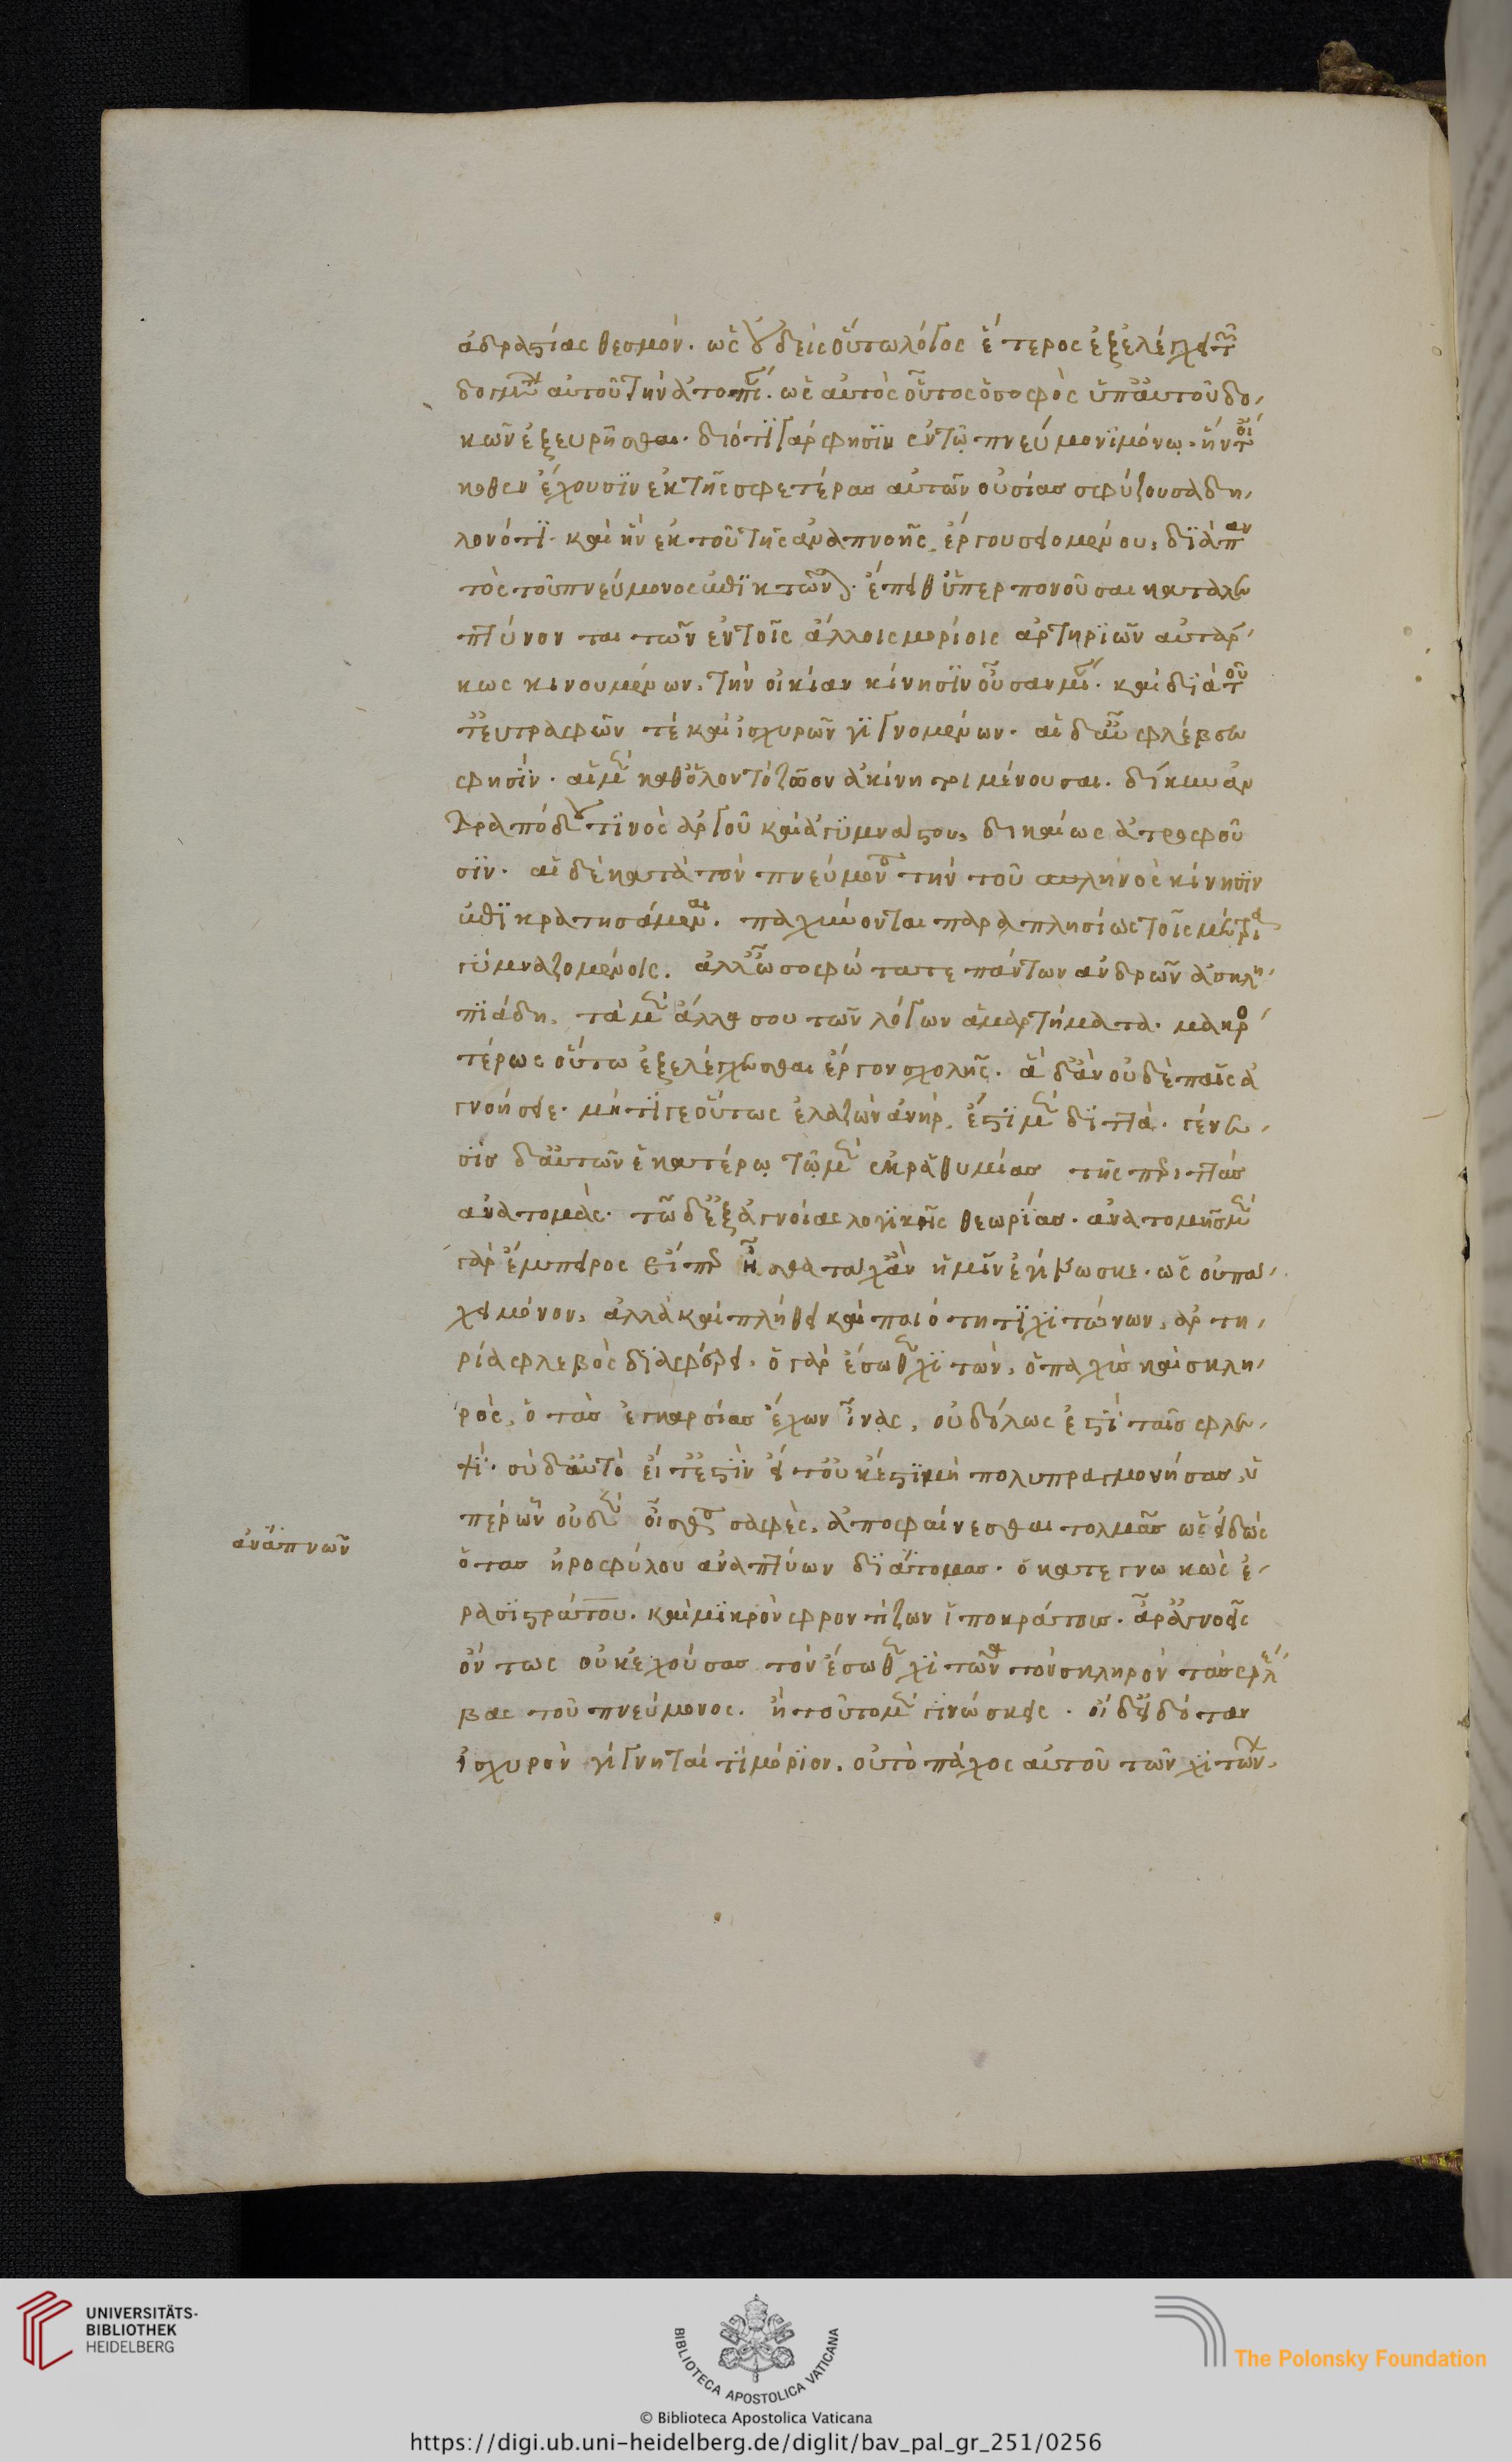 ἀδραστίας θεσμόν. ὡς οὐδεὶς οὕτω λόγος ἕτερος ἐξελέγχει τῶν
δογμάτων αὐτοῦ τὴν ἀτοπίαν. ὡς αὐτὸς οὗτος ὁ σοφὸς ὑπ αὐτοῦ δο
κῶν ἐξευρῆσθαι. διότι γάρ φησιν ἐν τῷ πνεύμονι μόνῳ. ἥν τοι
κοθεν ἔχουσιν ἐκ τῆς σφετέρας αὐτῶν οὐσίας σφύζουσαι δη
λονότι. καὶ ἣν ἐκ τοῦ τῆς ἀναπνοῆς ἔργου σειομένου, διὰ παν
τὸς τοῦ πνεύμονος ἐπικτῶνται. ἐπειθ ὑπερπονοῦσαι καταλε
πτύνονται τῶν ἐν τοῖς ἄλλοις μορίοις ἀρτηριῶν αὐτάρ
κως κινουμένων. τὴν οἰκίαν κίνησιν οὖσαν μίαν. καὶ διὰ τοῦ
τ εὐτραφῶν τὲ καὶ ἰσχυρῶν γιγνομένων. αἱ δ αὖ φλέβες
φησίν. αἱ μὲν καθ ὅλον τὸ ζῶον ἀκίνητοι μένουσαι. δίκην ἀν
δραπόδου τινὸς ἀργοῦ καὶ ἀγυμνάστου, δικαίως ἀτροφοῦ
σιν. αἱ δὲ κατὰ τὸν πνεύμονα τὴν τοῦ σπλάγχνου κίνησιν
ἐπικρατησάμεναι. παχύνονται παραπλησίως τοῖς μέτρια
γυμναζομένοις. ἀλλ ὦ σοφώτατε πάντων ἀνδρῶν ἀσκλη
πιάδη. τὰ μὲν ἄλλα σου τῶν λόγων ἁμαρτήματα. μακρο
τέρως οὕτω ἐξελέγχεσθαι ἔργον σχολῆς. ἃ δ ἂν οὐδὲ παῖς ἀ
γνοήσειε. μήτι γε οὕτως ἀλαζὼν ἀνήρ. ἔστι μὲν διττά. γένε
σις δ αὐτῶν ἑκατέρῳ τῷ μὲν ἐκ ῥαθυμίας τῆς περὶ τὰς
ἀνατομάς. τῶ δ ἐξ ἀγνοίας λογικῆς θεωρίας. ἀνατομῆς μὲν
γὰρ ἔμπειρος εἴπερ ἦσθα τάχ ἂν ἡμῖν ἐγίνωσκε. ὡς οὐ πά
χει μόνον, ἀλλὰ καὶ πλήθει καὶ ποιότητι χιτώνων, ἀρτη
ρία φλεβὸς διαφέρει. ὁ γὰρ ἔσωθεν χιτών, ὁ παχὺς καὶ σκλη
ρός, ὁ τὰς ἐγκαρσίας ἔχων ἶνας, οὐδ ὅλως ἐστὶ ταῖς φλε
ψί. σὺ δ αὐτὸ εἴτ ἐστὶν εἴτ οὐκ ἔστι μὴ πολυπραγμονήσας, ὑ
πὲρ ὧν οὐδὲν οἶσθα σαφές, ἀποφαίνεσθαι τολμᾶς ὡς εἰδώς
ὁ τὰς ἡροφίλου διαπτύων ἀνατομάς. ὁ κατεγνωκὼς ἐ
ρασιστράτου. καὶ μικρὸν φροντίζων ἱπποκράτους. ἆρ ἀγνοεῖς
ὄντως οὐκ ἐχούσας τὸν ἔσωθεν χιτῶνα τὸν σκληρὸν τὰς φλέ
βας τοῦ πνεύμονος. ἢ τοῦτο μὲν γινώσκεις. οἴει δ εἰδόταν
ἰσχυρὸν γίγνηταί τι μόριον, οὐ τὸ πάχος αὐτοῦ τῶν χιτώνων.
ἀναπνῶν
UNIVERSITÄTS-
BIBLIOTHEK
HEIDELBERG
BIBLIOTECA APOSTOLICA VATICANA
© Biblioteca Apostolica Vaticana
The Polonsky Foundation
https://digi.ub.uni-heidelberg.de/diglit/bav_pal_gr_251/0256